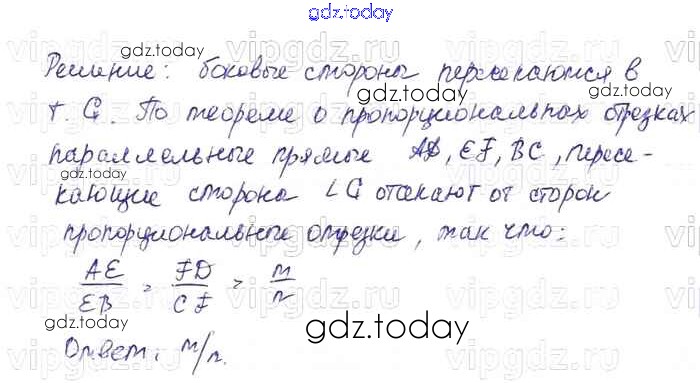 gdz.today
Решение: боковые стороны пересекаются в
т. G. По теореме о пропорциональных отрезках
параллельные прямые AD, EF, BC, пересе-
кающие стороны ∠G отсекают от сторон
пропорциональные отрезки, так что:
AE/EB = FD/CF = m/n
Ответ: m/n.
gdz.today
gdz.today
gdz.today
gdz.today
gdz.today
gdz.today